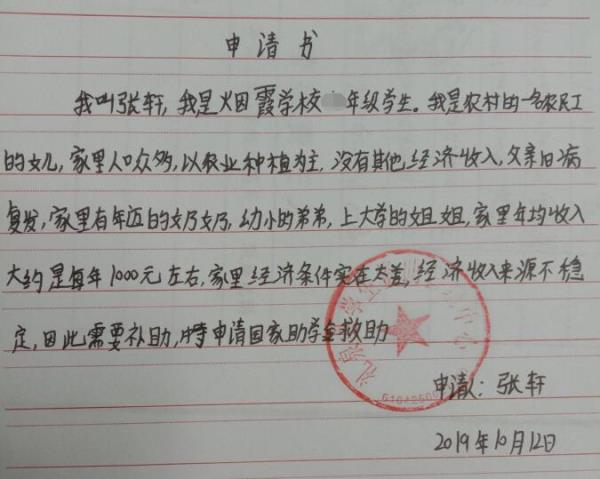 申请书
我叫张轩,我是烟霞学校 年级学生。我是农村的一名农民工
的女儿,家里人口众多,以农业种植为主,没有其他经济收入,父亲旧病
复发,家里有年迈的奶奶,幼小的弟弟,上大学的姐姐,家里年均收入
大约是每年1000元左右,家里经济条件实在太差,经济收入来源不稳
定,因此需要补助,特申请国家助学金救助
申请人:张轩
2019年10月12日